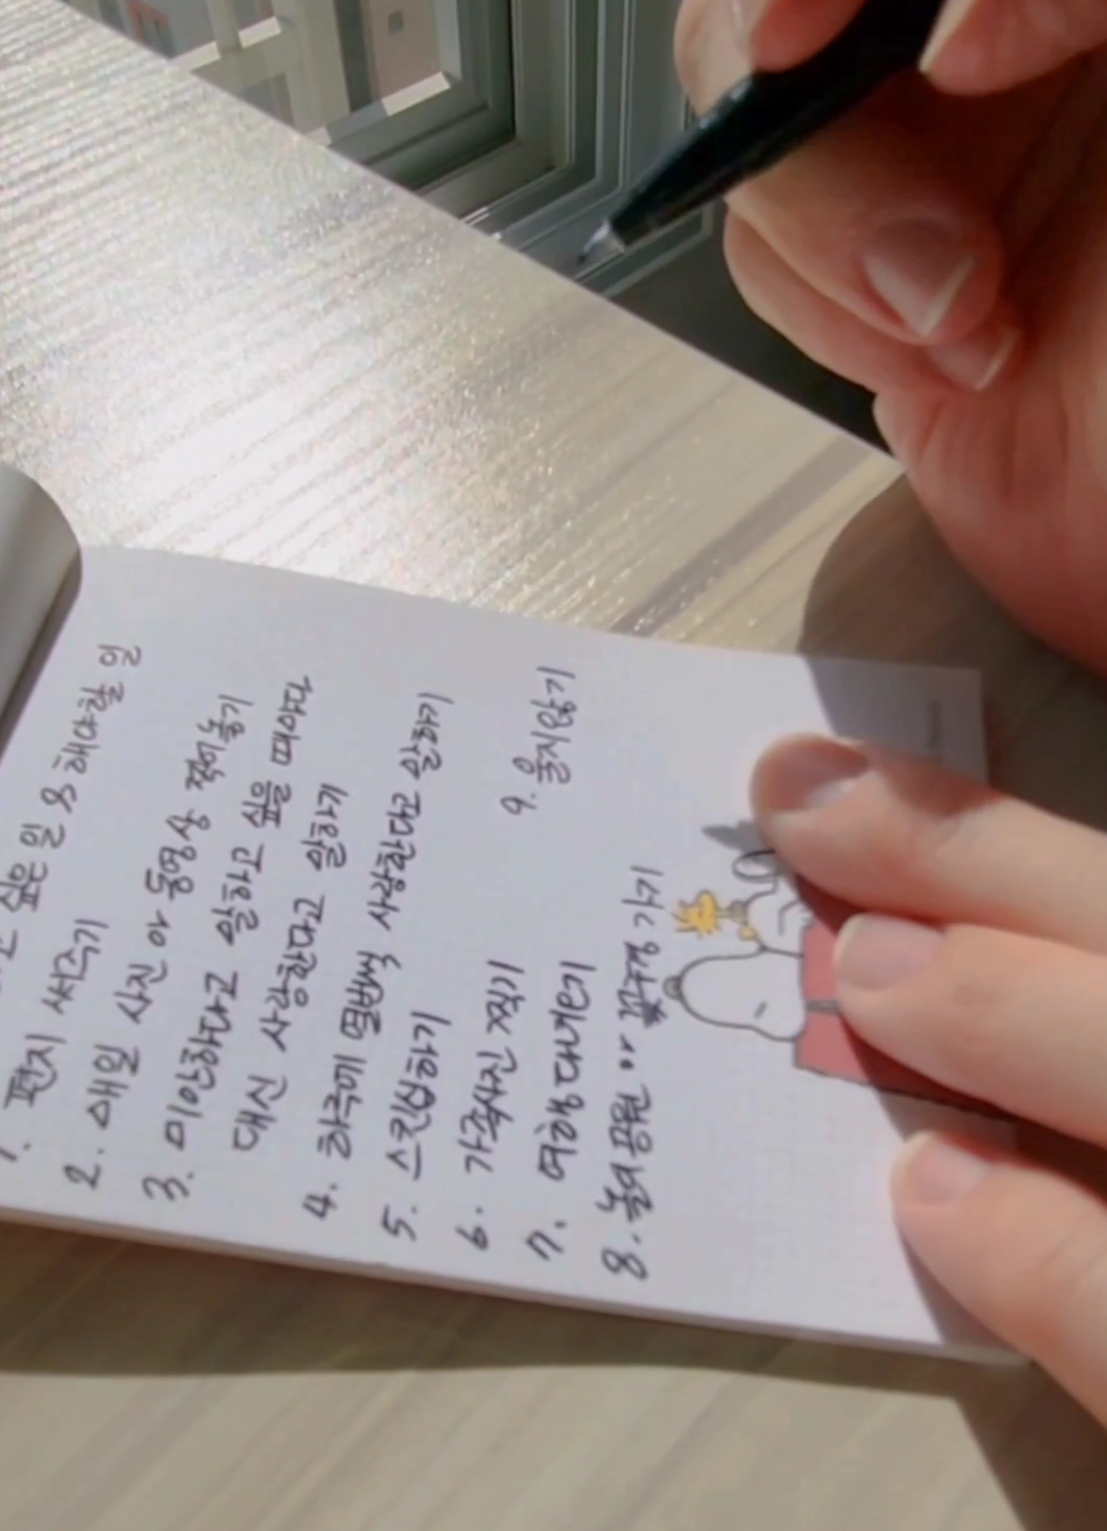 싶은 일 & 해야할 일
1. 편지 써주기
2. 매일 사진 or 동영상 찍어놓기
3. 미안하다고 말하고 싶을 때마다
대신 사랑한다고 말하기
4. 하루에 열번씩 사랑한다고 말하기
5. 스킨십하기
6. 가족사진 찍기
7. 여행 다녀오기
8. 놀이공원 or 꽃구경 가기
9. 울지않기